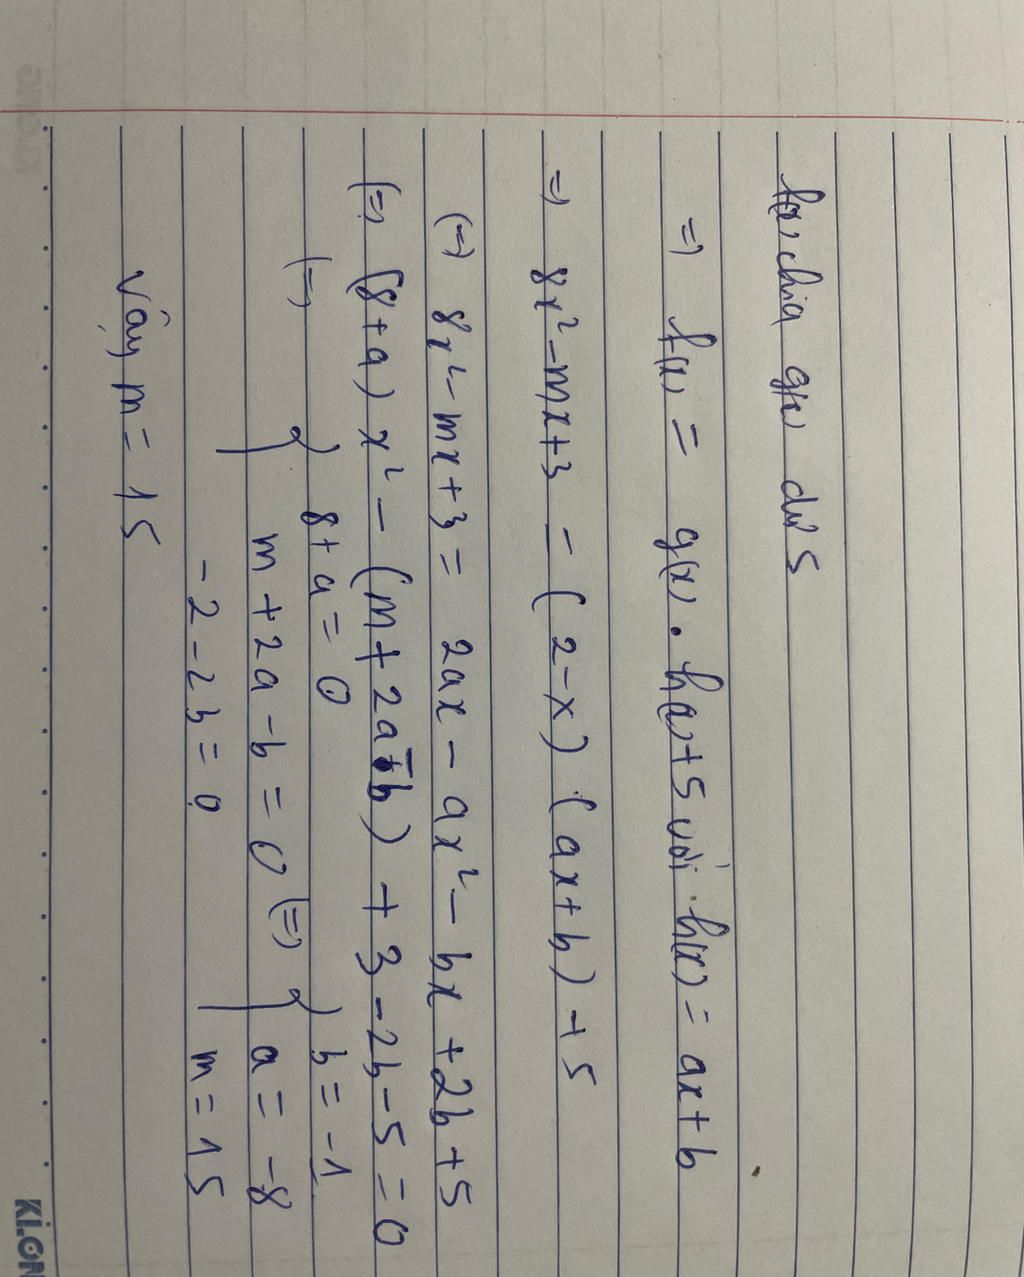 f(x) chia g(x) dư 5
=) f(x) = g(x) . h(x) + 5 với h(x) = ax + b
=) 8x² - mx + 3 = (2 - x) (ax + b) + 5
(=) 8x² - mx + 3 = 2ax - ax² - bx + 2b + 5
(=) (8 + a) x² - (m + 2a - b) + 3 - 2b - 5 = 0
(=) { 8 + a = 0
m + 2a - b = 0 (=) { b = -1
-2 - 2b = 0 a = -8
m = 15
Vậy m = 15
KLONG